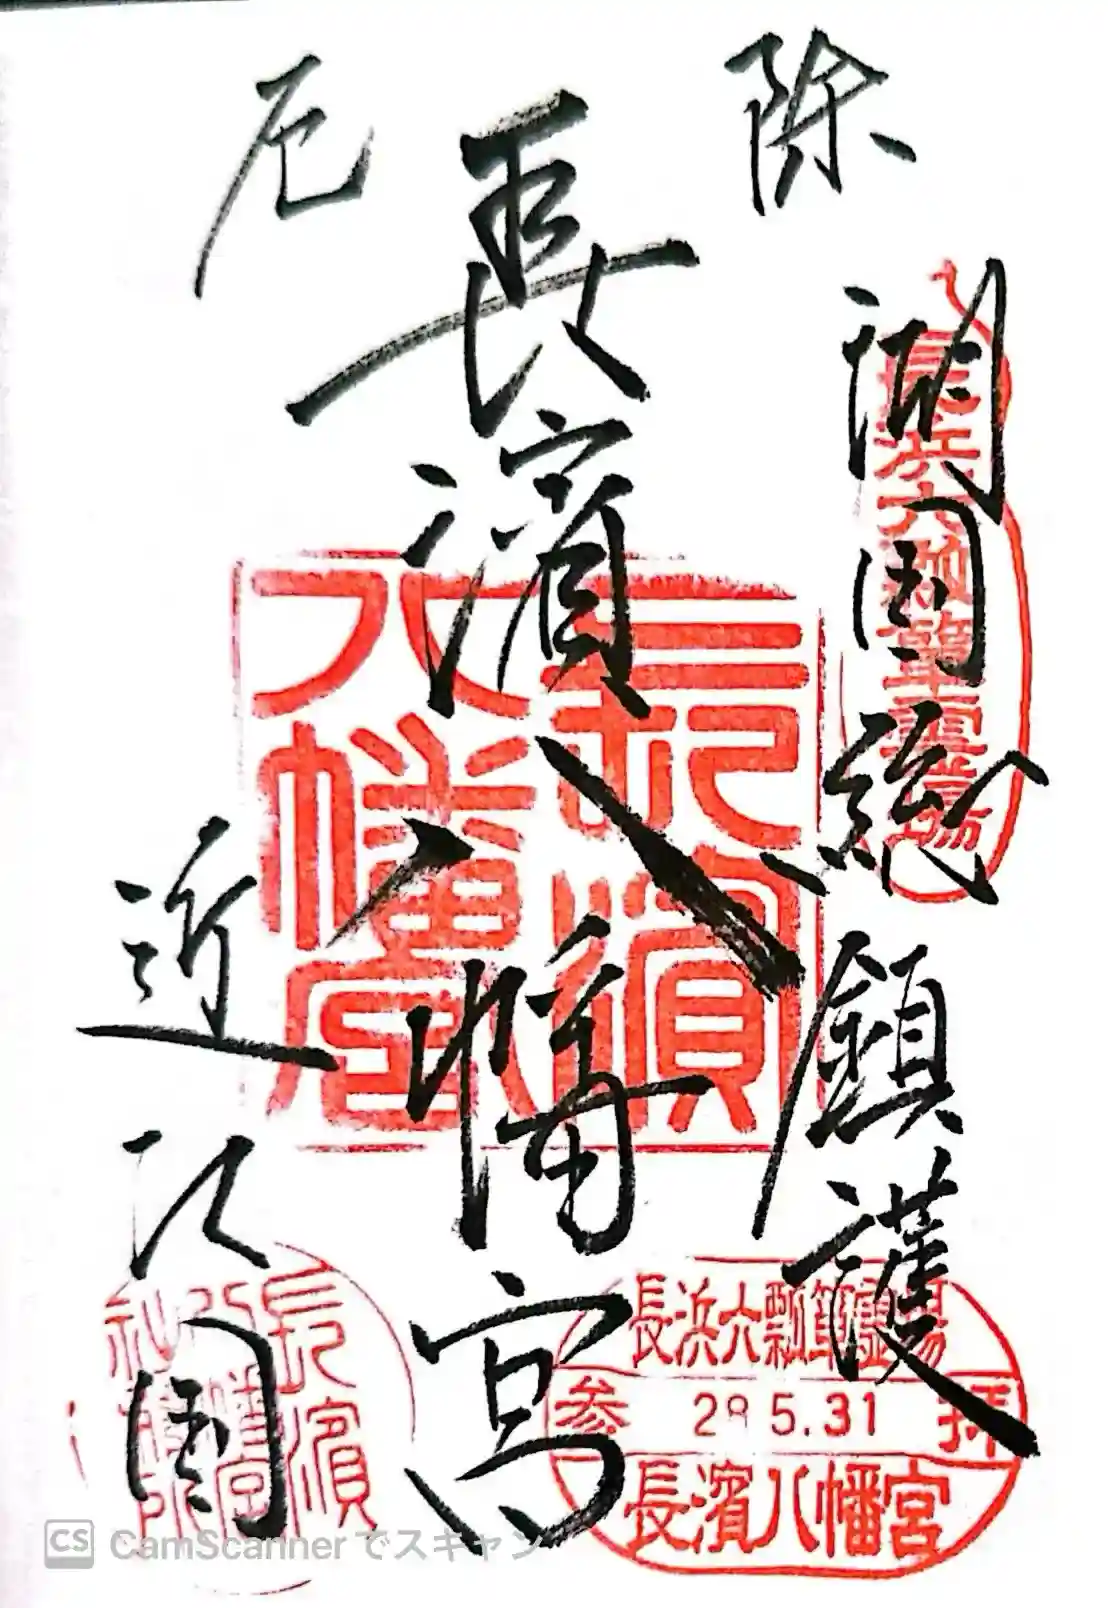 除厄
湖國総鎮護
長濱八幡宮
近江國
長浜六瓢箪霊場
長濱八幡宮
長浜六瓢箪霊場
参 28.5.31 拝
長濱八幡宮
長濱
八幡宮
社務所
CS CamScannerでスキャン